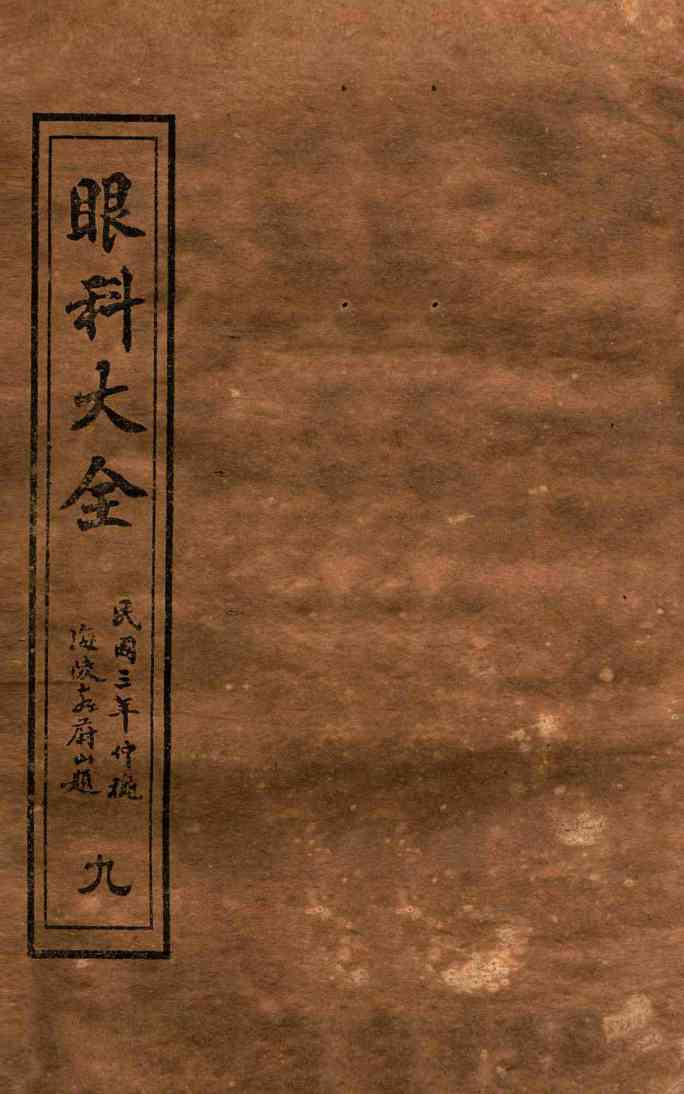 眼科大全
民國三年仲秋
海陵蔚山題
九